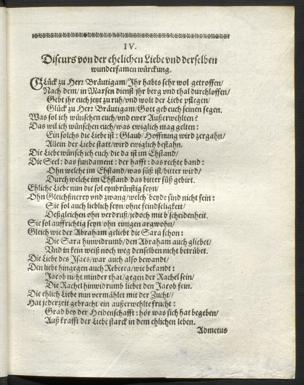 IV.
Discurs von der ehelichen Liebe vnd derselben
wundersamen würckung.
GLück zu Herr Bräutigam/ Jhr habts sehr wol getroffen/
Nach dem/ in Marsen dienst jhr berg vnd thal durchloffen/
Gebt jhr euch jetzt zu ruh/ vnd wolt der Liebe pflegen/
Glück zu Herr Bräutigam/ Gott geb euch seinen segen.
Was sol ich wünschen euch/ vnd ewer Außerwehlten?
Das wil ich wünschen euch/ was ewiglich mag gelten:
Ein solchs die Liebe ist: Glaub/ Hoffnung wird zergahn/
Allein der Liebe statt/ wird ewiglich bestahn.
Die Liebe wünsch ich euch die da ist im Ehstand/
Die Seel: das fundament: der hafft: das rechte band:
Ohn welche im Ehstand/ was süß ist/ bitter wird/
Durch welche im Ehstand das bitter süß gebirt.
Ehliche Liebe nun die sol eynbrünstig seyn/
Ohn Gleichsnerey vnd zwang/ welch beyde sind nicht fein:
Sie sol auch lieblich seyn/ ohne feindseligkeit/
Deßgleichen ohn verdruß/ jedoch mit bscheidenheit.
Sie sol auffrichtig seyn/ ohn einigen argwohn/
Gleich wie der Abraham geliebt die Sara schon:
Die Sara hinwidrumb/ den Abraham auch gliebet/
Vnd in kein weiß noch weg denselben nicht betrübet.
Die Liebe des Isacs/ war auch also bewandt/
Den liebt hingegen auch Rebecca/ wie bekandt:
Jacob nicht minder that/ gegen der Rachel sein/
Die Rachel hinwidrumb liebet den Jacob fein.
Die ehlich Liebe nun vermählet mit der Zucht/
Hat jederzeit gebracht ein außerwehlte frucht:
Grad bey der Heidenschafft: hör was sich hat begeben/
Auß krafft der Liebe starck in dem ehlichen leben.
Admetus